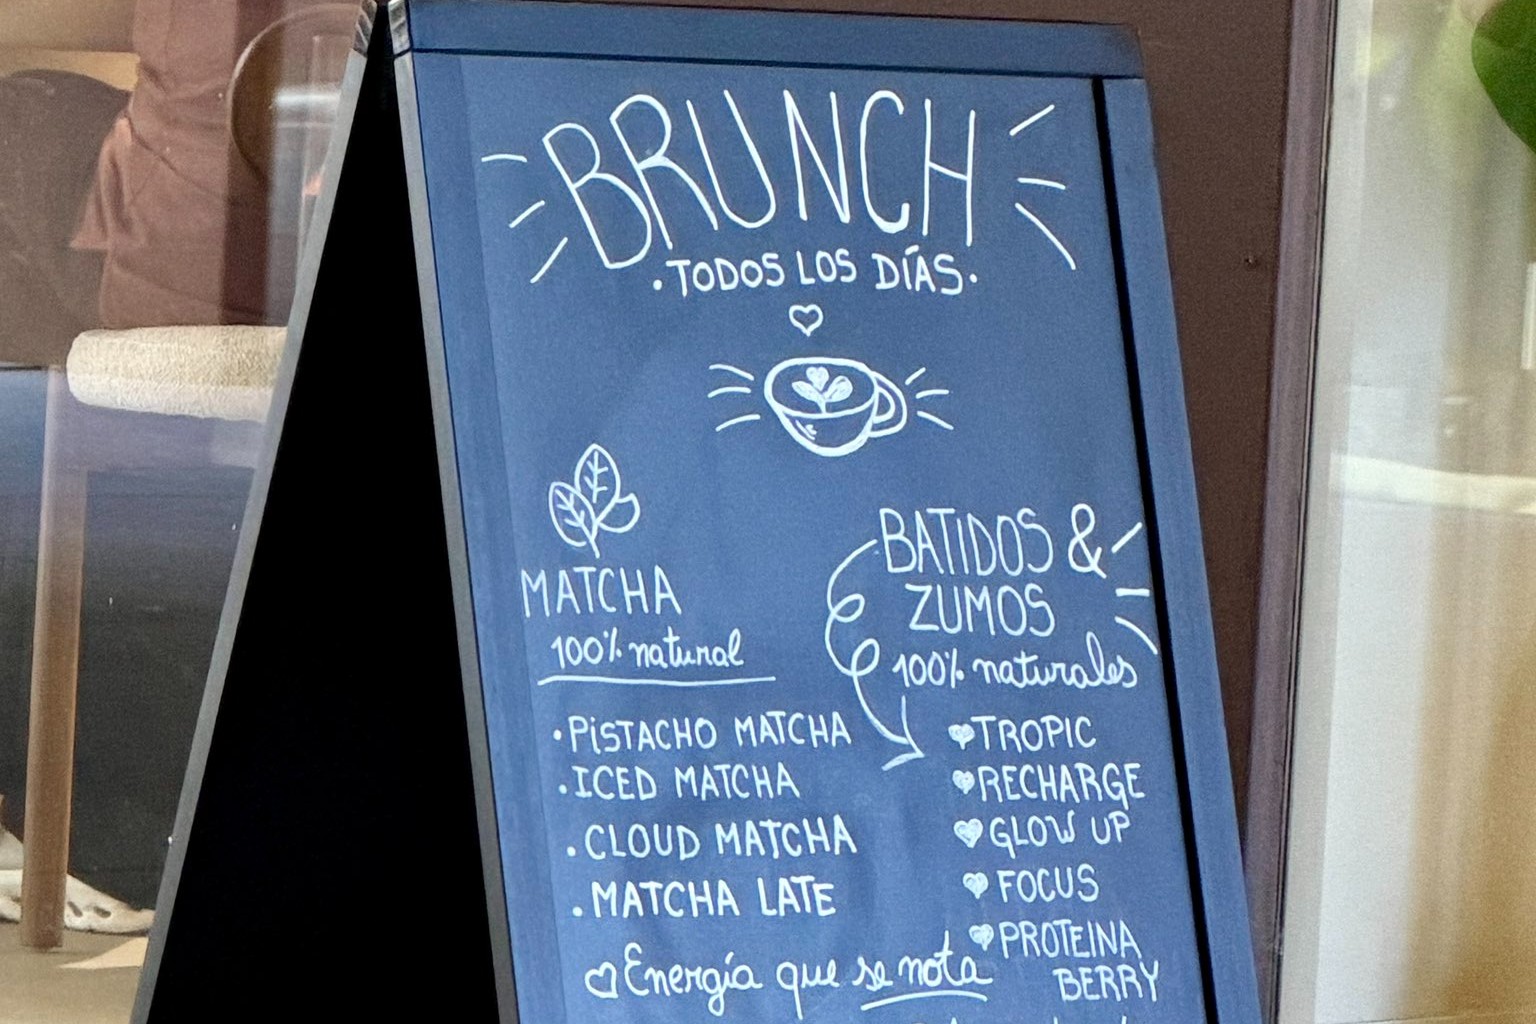 BRUNCH
· TODOS LOS DÍAS ·
MATCHA
100% natural
· PISTACHO MATCHA
· ICED MATCHA
· CLOUD MATCHA
· MATCHA LATE
Energía que se nota
BATIDOS &
ZUMOS
100% naturales
TROPIC
RECHARGE
GLOW UP
FOCUS
PROTEINA
BERRY